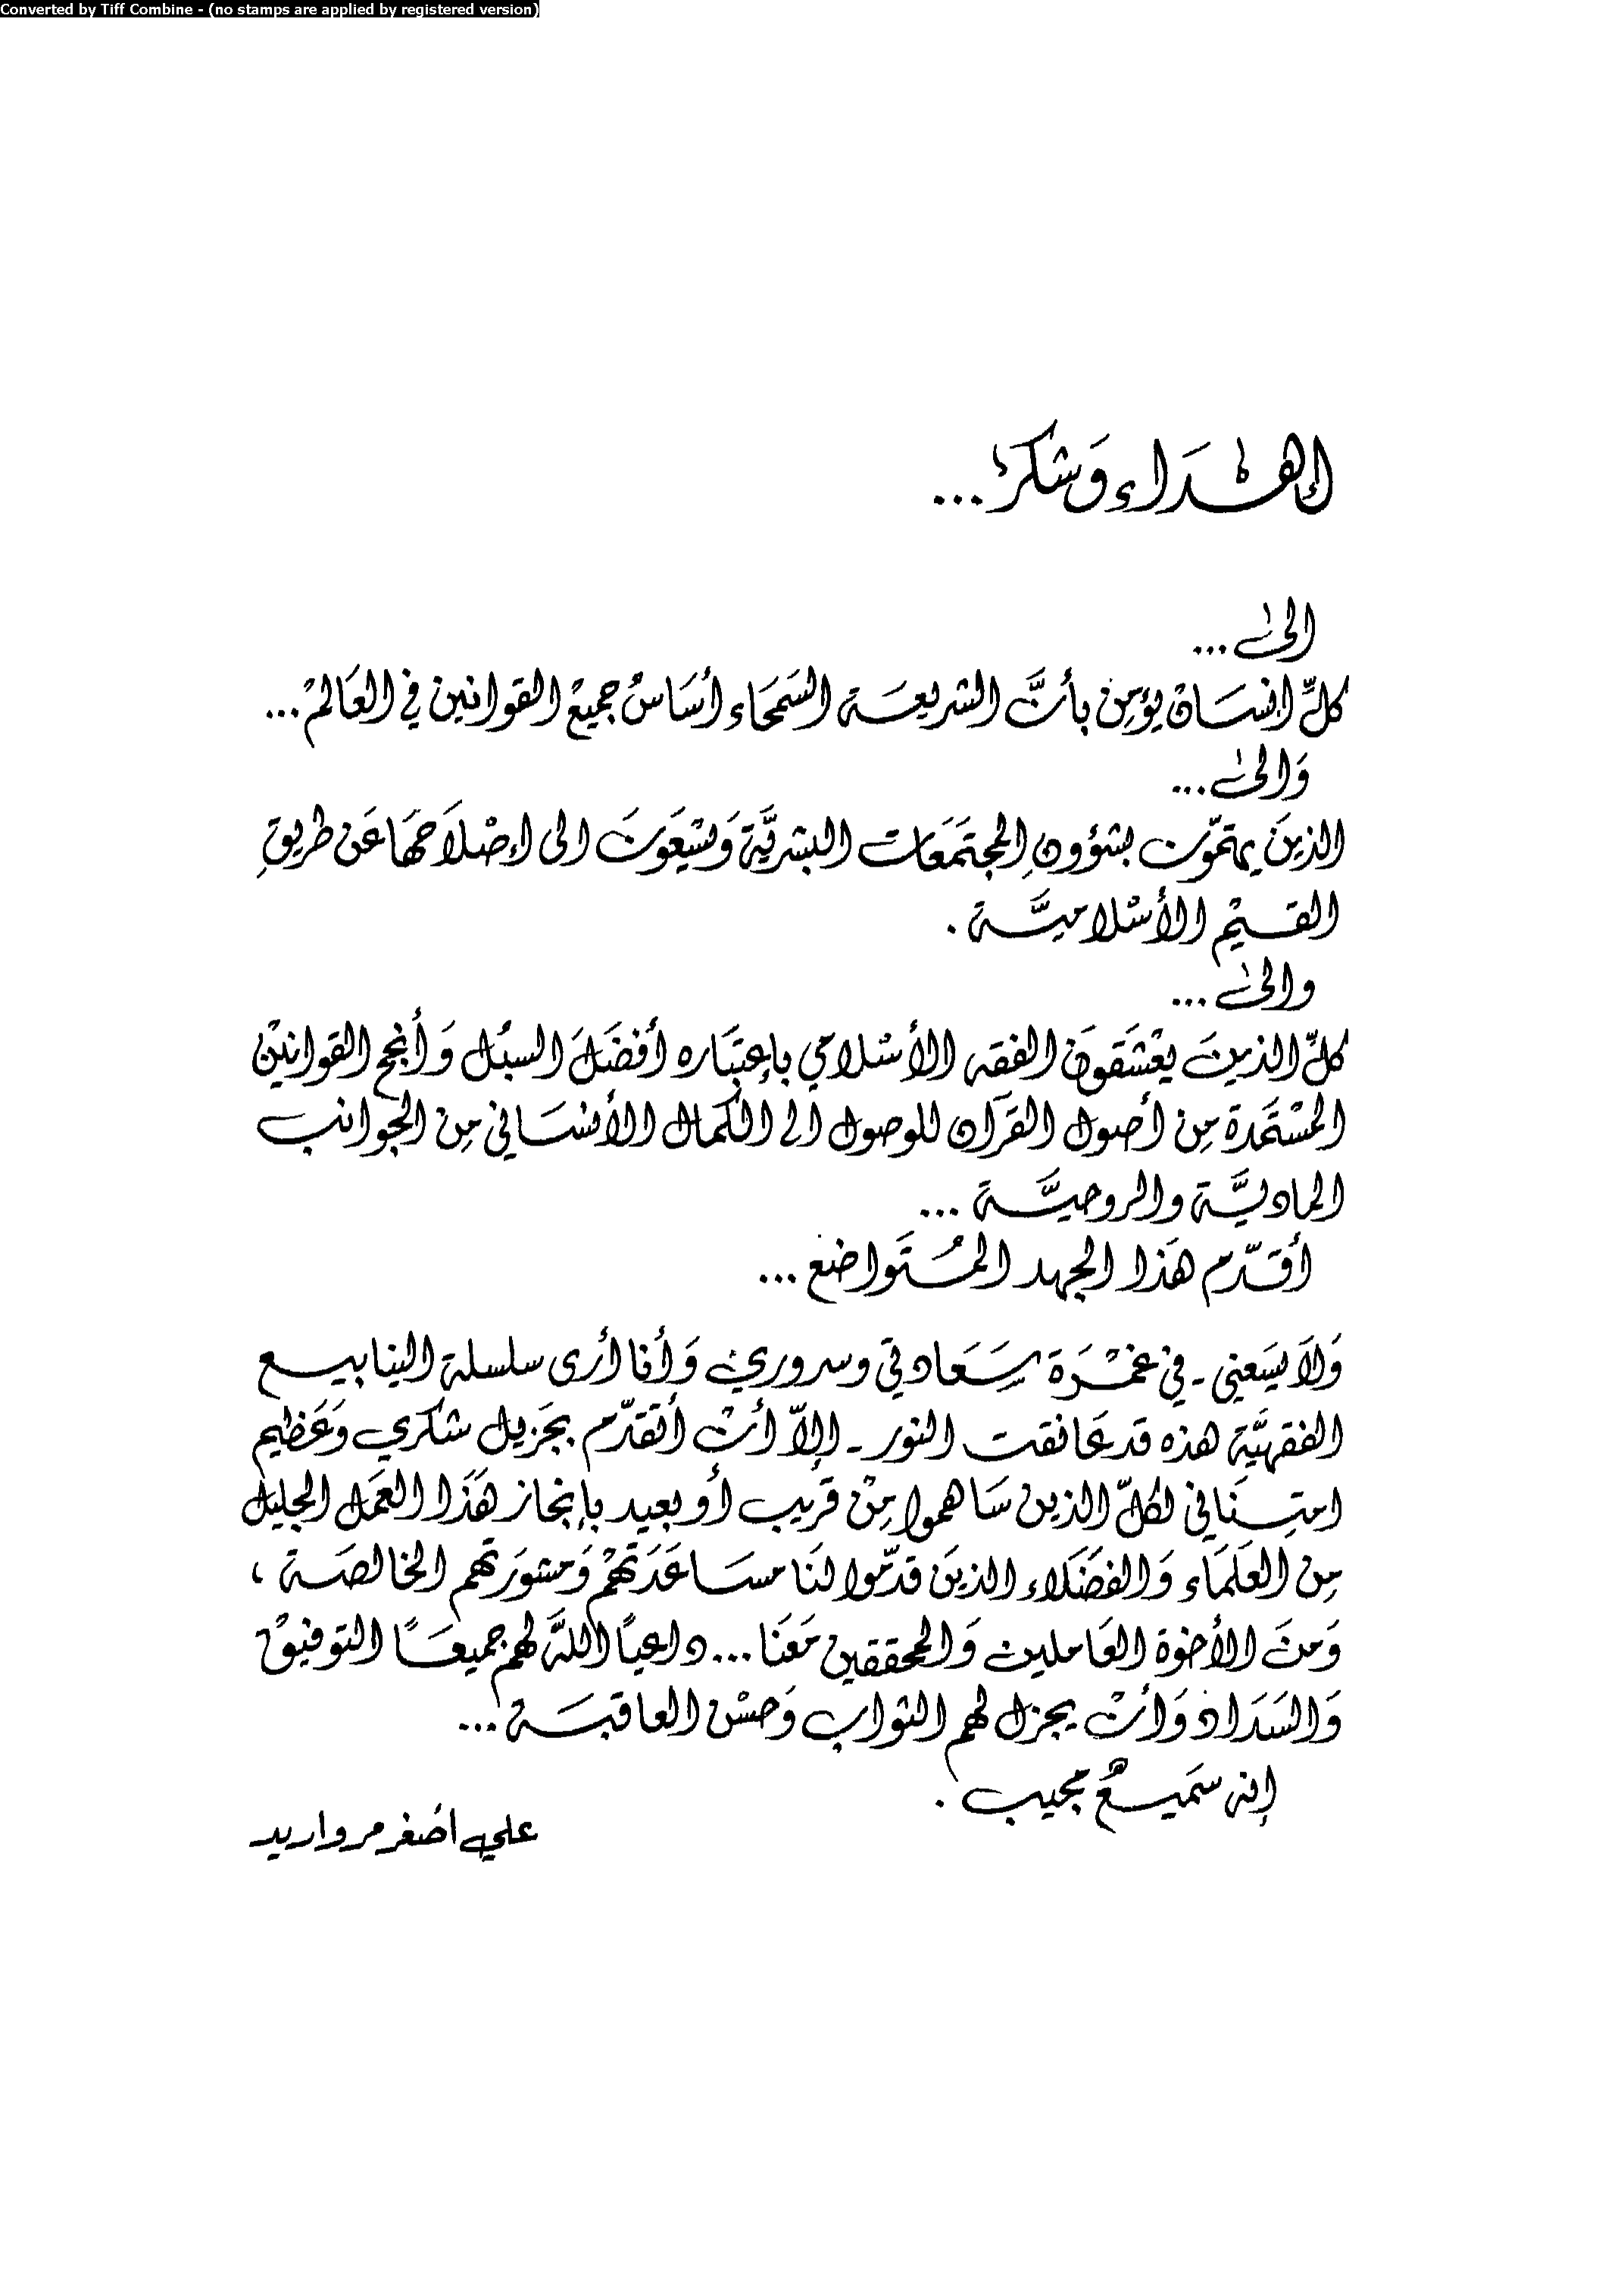 Converted by Tiff Combine - (no stamps are applied by registered version)
إهداء وشكر ...
الى ...
كلِّ إنسان يؤمن بأنَّ الشريعة السمحاء أساسُ جميع القوانين في العالم ...
وَالى ...
الذين يهتمّون بشؤونِ المجتمَعات البشريَّة وَيسْعَونَ الى إصْلاَحهَا عَن طريقِ
القيم الأسْلاميَّة .
والى ...
كلِّ الذينَ يعْشَقونَ الفقه الأسْلامي بإعتبَاره أفضَلَ السبُل وَأنجح القوانين
المسْتمَدة مِن أصول القرآن للوصول الى الكمال الأنسَاني مِن الجوانب
الماديَّة والروحيَّة ...
أقدّم هَذا الجهد المُتَواضع ...
وَلاَ يسَعني - في غمْرَة سَعَادتي وسروري وَأنا أرى سلسلة الينابيع
الفقهيَّة هذه قد عَانقت النور - إلاّ أنْ أتقدّم بجَزيل شكري وَعَظيم
امتِنَاني لكلّ الذين سَاهموا مِنْ قريب أو بعيد بإنجاز هَذا العَمَل الجليل
مِن العلَمَاء وَالفضَلاء الذينَ قدّموا لنَا مسَاعَدَتهمْ وَمشورَتهم الخالصَة ،
وَمنَ الأخوة العَاملين وَالمحققين مَعَنا ... داعياً اللهَ لهم جميعَاً التوفيق
وَالسَدَاد وَأنْ يجزل لهم الثواب وَحسْن العاقبَة ...
إنه سَميعٌ مجيب .
علي اصَغر مرواريد